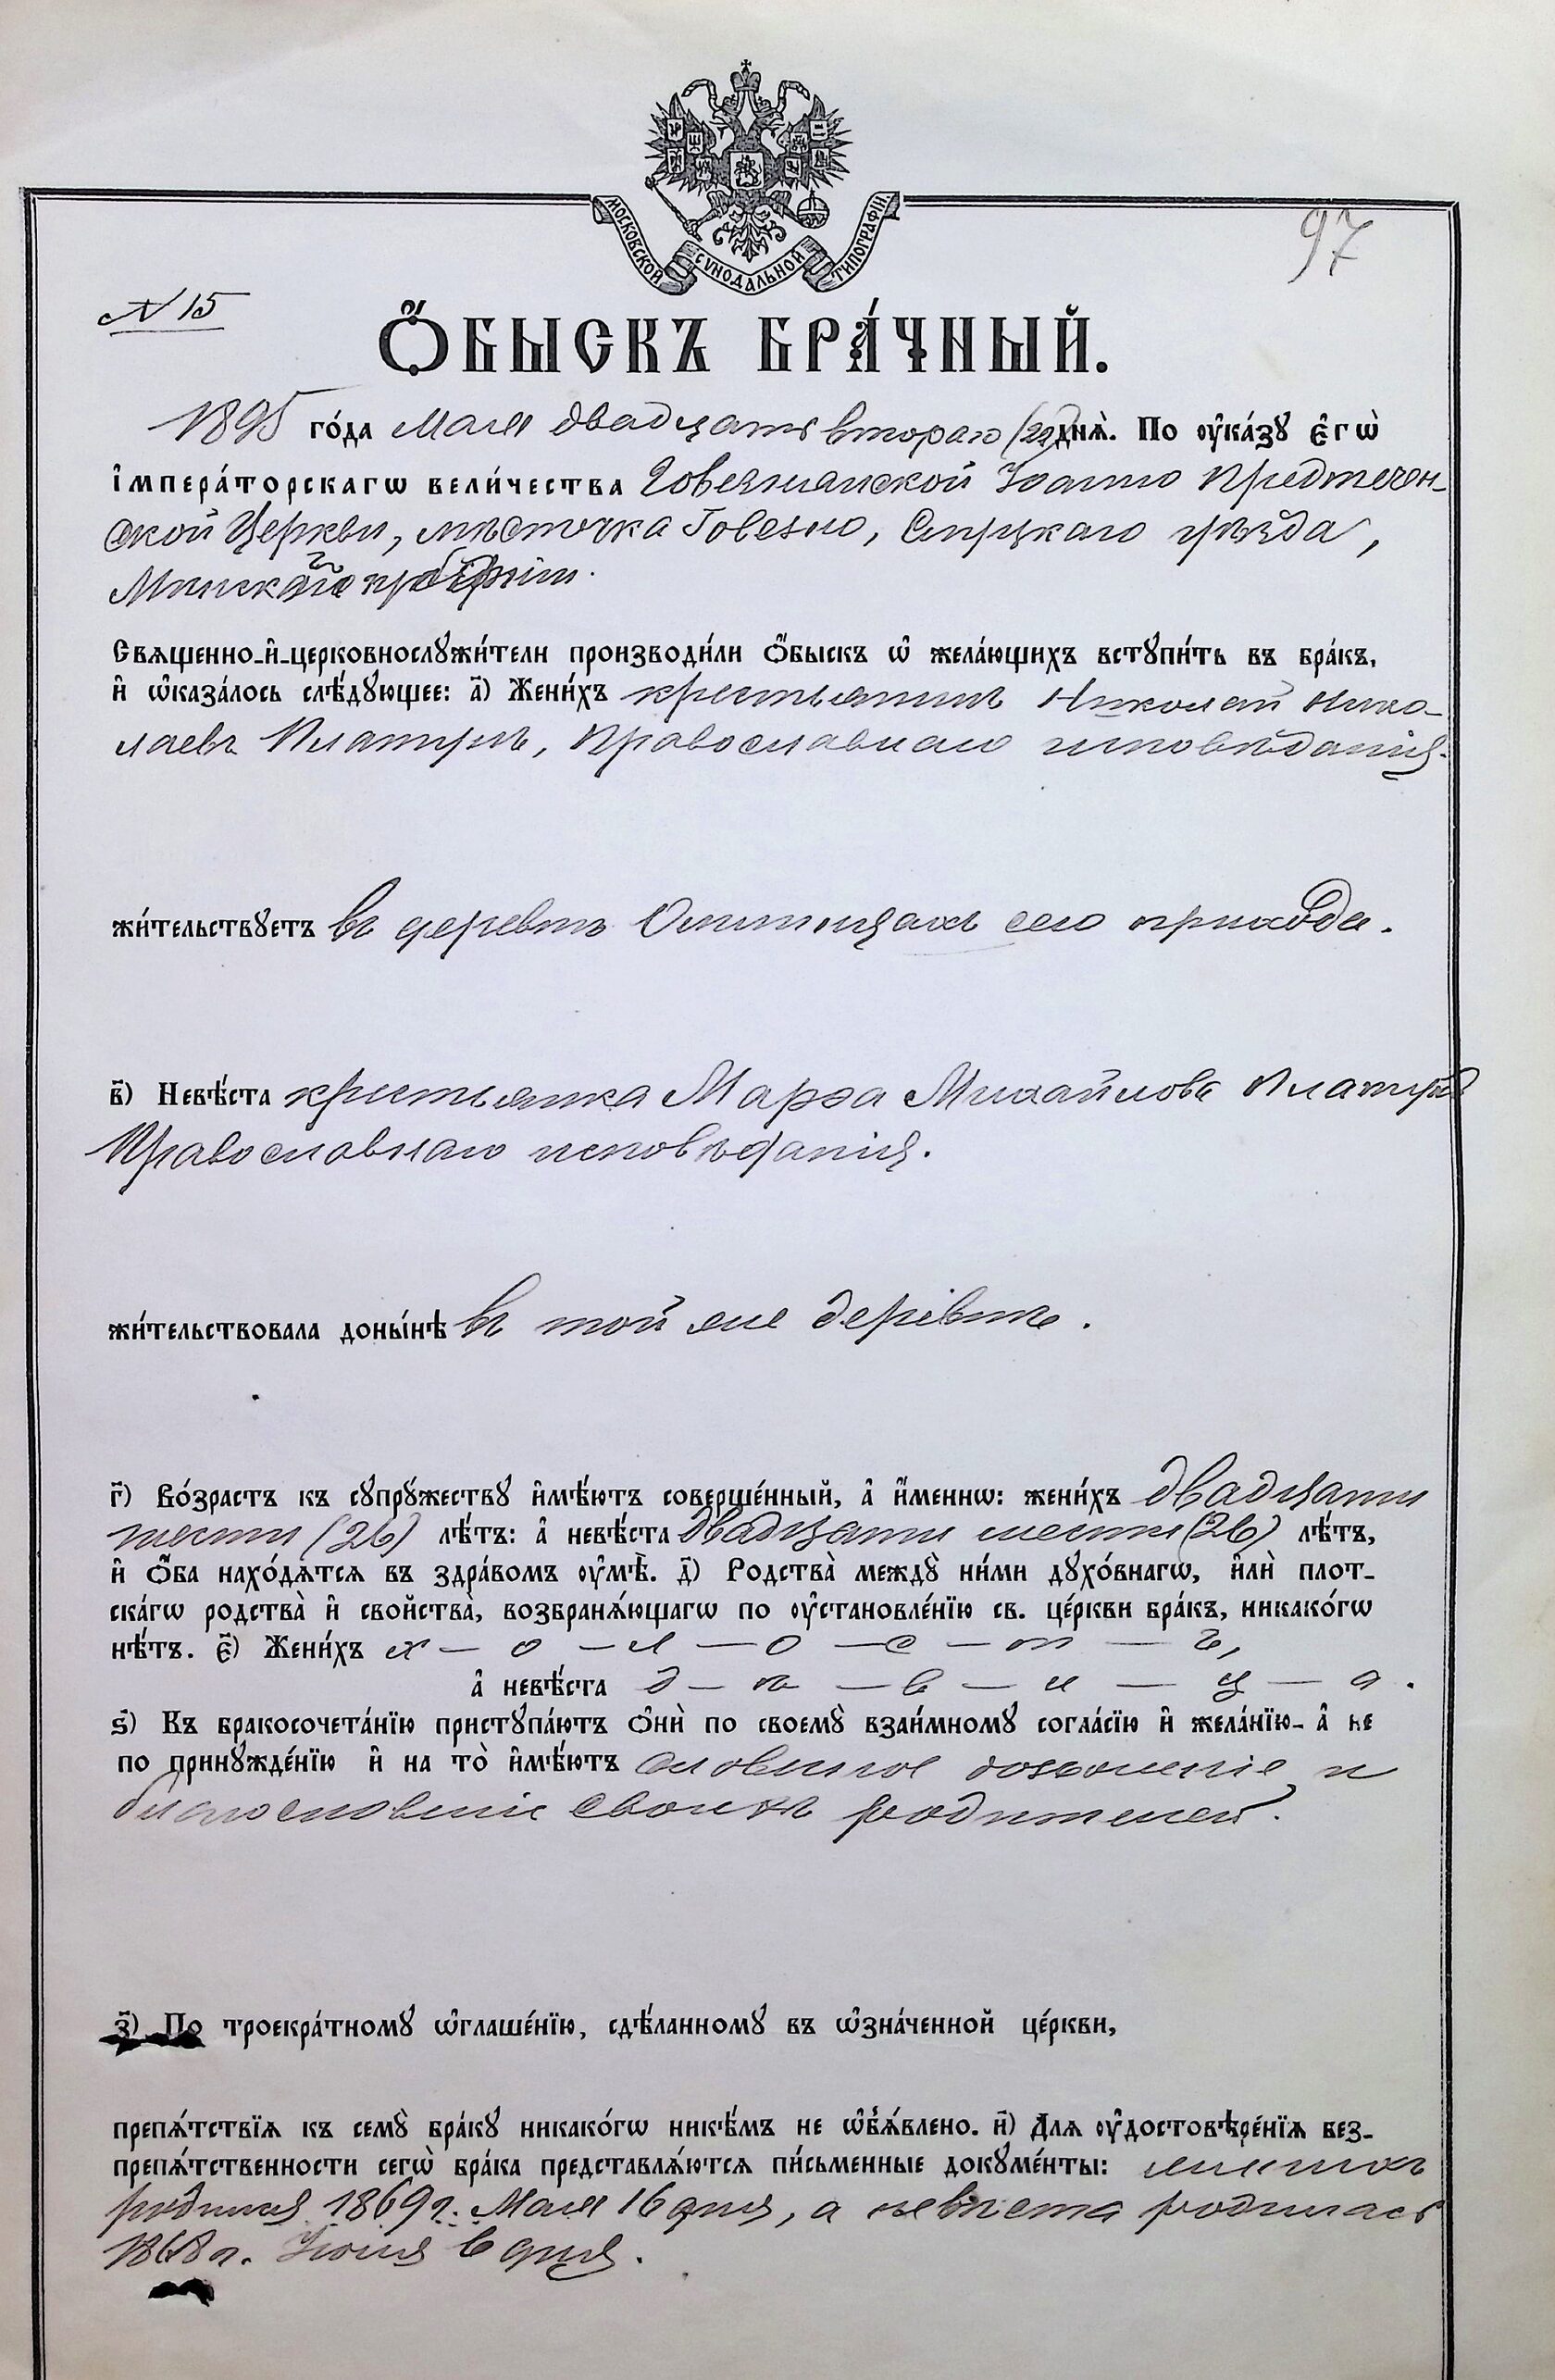 МОСКОВСКОЙ СѴНОДАЛЬНОЙ ТИПОГРАФІИ
97
N 15
Ѻ҆БЫСКЪ БРА́ЧНЫЙ.
1895 го́да Мая двадцать втораго (22) днѧ̀. По ᲂу҆ка́зꙋ є҆гѡ̀
і҆мпера́торскагѡ вели́чества Говезнянской Іоанно Предтечен-
ской Церкви, мѣстечка Говезно, Слуцкаго уѣзда,
Минской губерніи.
Свѧщенно-и҆-церковнослꙋжи́тели производи́ли ѻ҆́быскъ ѡ҆ жела́ющихъ встꙋпи́ть въ бра́къ,
и҆ ѡ҆каза́лось слѣ́дꙋющее: а҃) Жени́хъ крестьянинъ Николай Нико-
лаевъ Платунъ, Православнаго исповѣданія.
жи́тельствꙋетъ въ деревнѣ сего прихода.
в҃) Невѣ́ста крестьянка Марѳа Михайлова
Православнаго исповѣданія.
жи́тельствовала доны́нѣ въ той же деревнѣ.
г҃) Во́зрастъ къ сꙋпрꙋ́жествꙋ и҆мѣ́ютъ соверше́нный, а҆ и҆́меннѡ: жени́хъ двадцати
шести (26) лѣ́тъ: а҆ невѣ́ста двадцати шести (26) лѣ́тъ,
и҆ ѻ҆́ба нахо́дѧтсѧ въ здра́вомъ ᲂу҆мѣ̀. д҃) Родства̀ междꙋ̀ ни́ми дꙋхо́внагѡ, и҆лѝ плот-
ска́гѡ родства̀ и҆ свойства̀, возбранѧ́ющагѡ по ᲂу҆становле́нїю св. це́ркви бра́къ, никако́гѡ
нѣ́тъ. є҃) Жени́хъ х — о — л — о — с — т — ъ,
а҆ невѣ́ста д — ѣ — в — и — ц — а.
ѕ҃) Къ бракосочета́нїю пристꙋпа́ютъ ѻ҆нѝ по своемꙋ̀ взаи́мномꙋ согла́сїю и҆ жела́нїю- а҆ не
по принꙋжде́нїю и҆ на то̀ и҆мѣ́ютъ словесное дозволеніе и
благословеніе своихъ родителей.
з҃) По троекра́тномꙋ ѡ҆глаше́нїю, сдѣ́ланномꙋ въ ѡ҆зна́ченной це́ркви,
препѧ́тствїѧ къ семꙋ̀ бра́кꙋ никако́гѡ никѣ́мъ не ѡ҆б̾ѧ́влено. и҃) Для ᲂу҆достовѣре́нїѧ без-
препѧ́тственности сегѡ̀ бра́ка представлѧ́ютсѧ пи́сьменные докꙋме́нты: женихъ
родился 1869 г. Мая 16 дня, а невѣста родилась
1868 г. 6 дня.